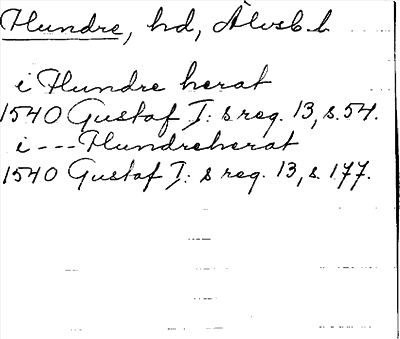 Hundre, hd, Älvsb. l
i Hundre herat
1540 Gustaf I: s reg. 13, s. 54.
i --- Hundreherat
1540 Gustaf I: s reg. 13, s. 177.